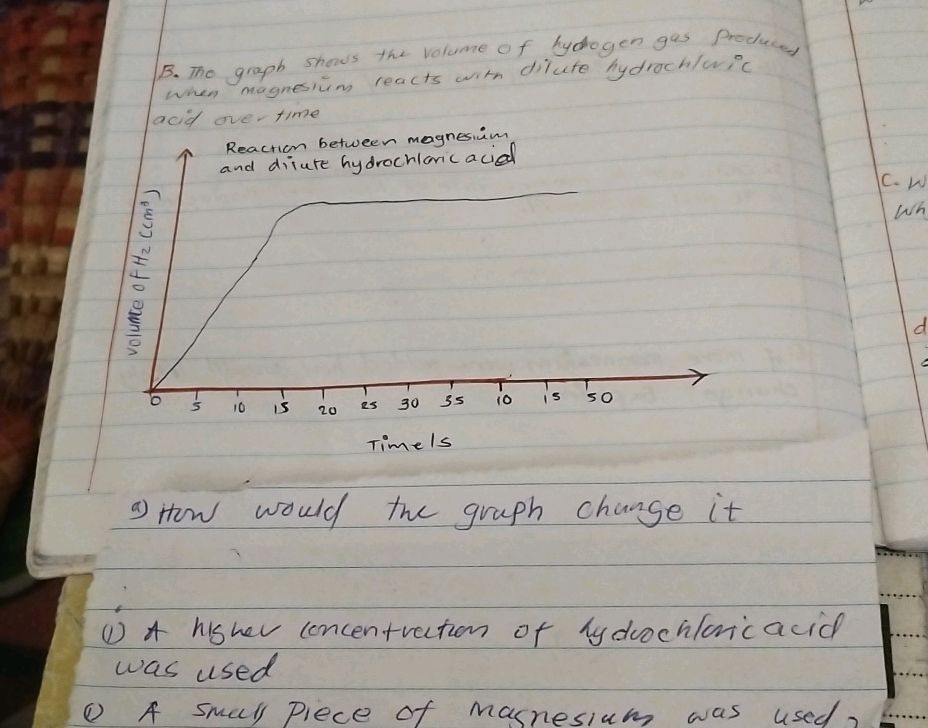 B. The graph shows the volume of hydrogen gas Produced
when magnesium reacts with dilute hydrochloric
acid over time
Reaction between magnesium
and dilute hydrochloric acid
volume of H2 (cm³)
0 5 10 15 20 25 30 35 10 15 50
Time/s
a) How would the graph change it
(i) A higher concentration of hydrochloric acid
was used
A small piece of magnesium was used
C. W
Wh
d